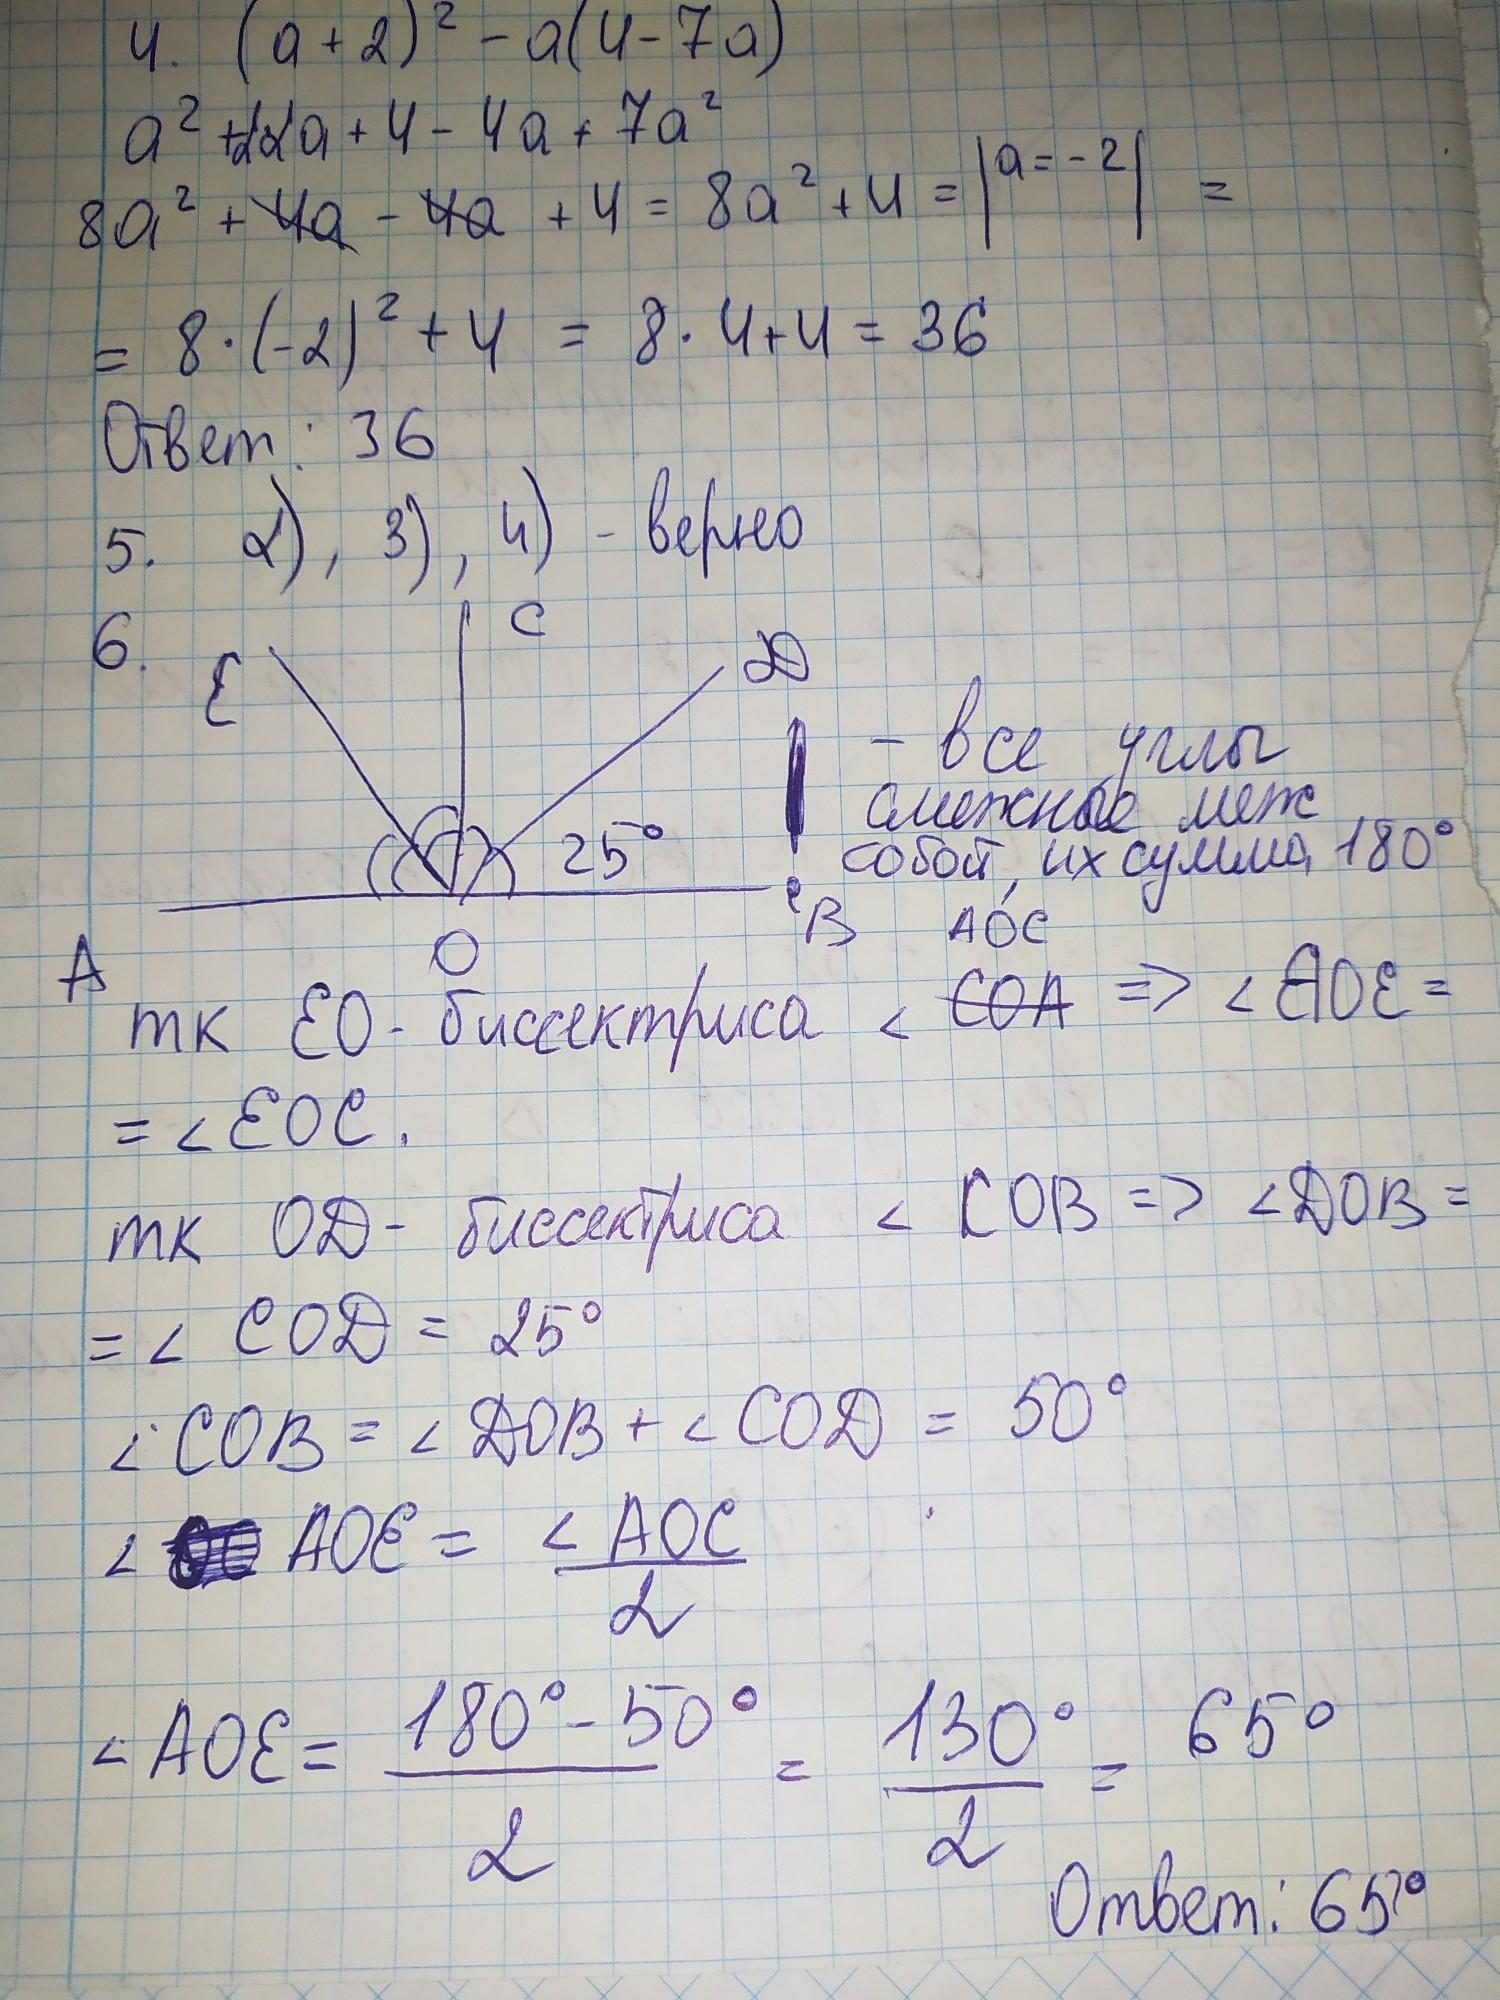 4. (a+2)² - a(4-7a)
a² + 2·2a + 4 - 4a + 7a²
8a² + 4a - 4a + 4 = 8a² + 4 = |a=-2| =
= 8·(-2)² + 4 = 8·4+4 = 36
Ответ: 36
5. 2), 3), 4) - верно
6.
E
C
D
25°
- все углы
смежные меж
собой, их сумма 180°
A
O
B
AOC
тк EO - биссектриса < COA => < AOE =
= < EOC.
тк OD - биссектриса < COB => < DOB =
= < COD = 25°
< COB = < DOB + < COD = 50°
< AOE = < AOC
2
< AOE = 180° - 50° = 130° = 65°
2 2
Ответ: 65°